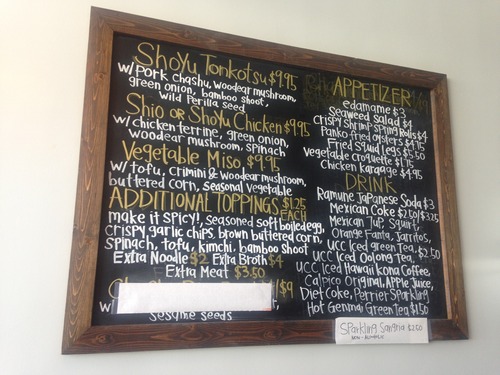 Shoyu Tonkotsu $9.95
w/pork chashu, woodear mushroom,
green onion, bamboo shoot,
wild perilla seed
Shio or Shoyu Chicken $9.95
w/chicken terrine, green onion,
woodear mushroom, spinach
Vegetable Miso $9.95
w/tofu, crimini & woodear mushroom,
buttered corn, seasonal vegetable
ADDITIONAL TOPPINGS $1.25
EACH
make it spicy!, seasoned soft boiled egg,
crispy garlic chips, brown buttered corn,
spinach, tofu, kimchi, bamboo shoot
Extra Noodle $2 Extra Broth $4
Extra Meat $3.50
$9
w
sesame seeds
APPETIZER
edamame $3
Seaweed salad $4
Crispy Shrimp Spring Rolls $4
Panko fried oysters $4.75
Fried Squid Legs $5.50
Vegetable croquette $1.75
Chicken Karaage $4.95
DRINK
Ramune Japanese Soda $3
Mexican Coke $2.50/$3.25
Mexican 7up, Squirt,
Orange Fanta, Jarritos,
UCC Iced green Tea, $2.50
UCC Iced Oolong Tea,
UCC Iced Hawaii Kona Coffee,
Calpico Original, Apple Juice,
Diet Coke, Perrier Sparkling
Hot Genmai Green tea $1.50
Sparkling Sangria $2.50
NON-ALCOHOLIC